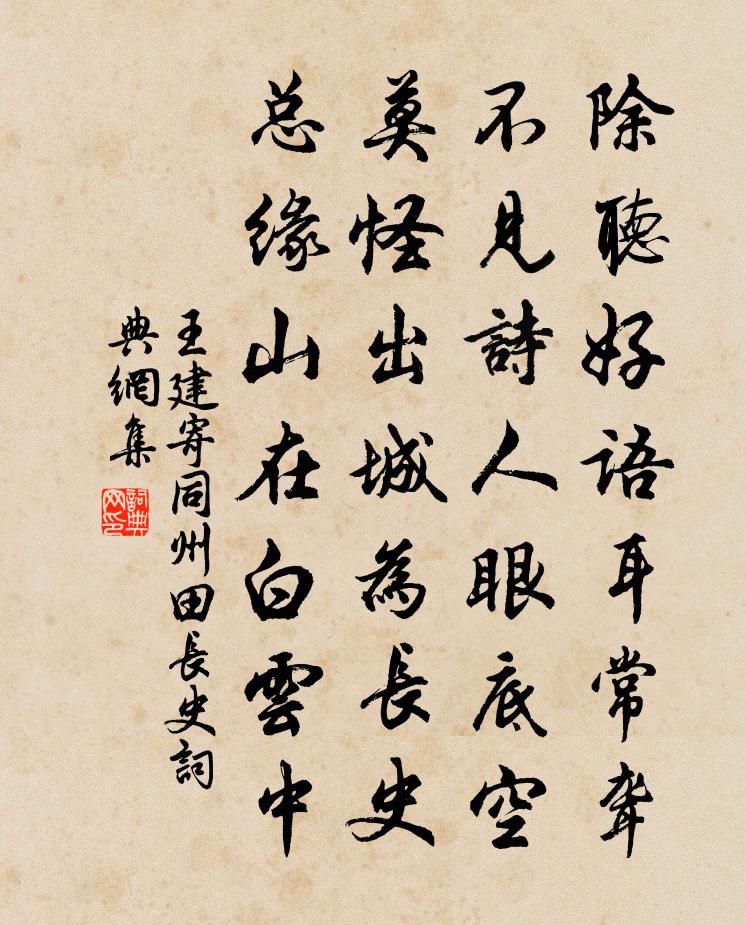 除聽好語耳常聾
不見詩人眼底空
莫怪出城為長史
总緣山在白雲中
王建寄同州田長史詞
典網集
詞典
网印